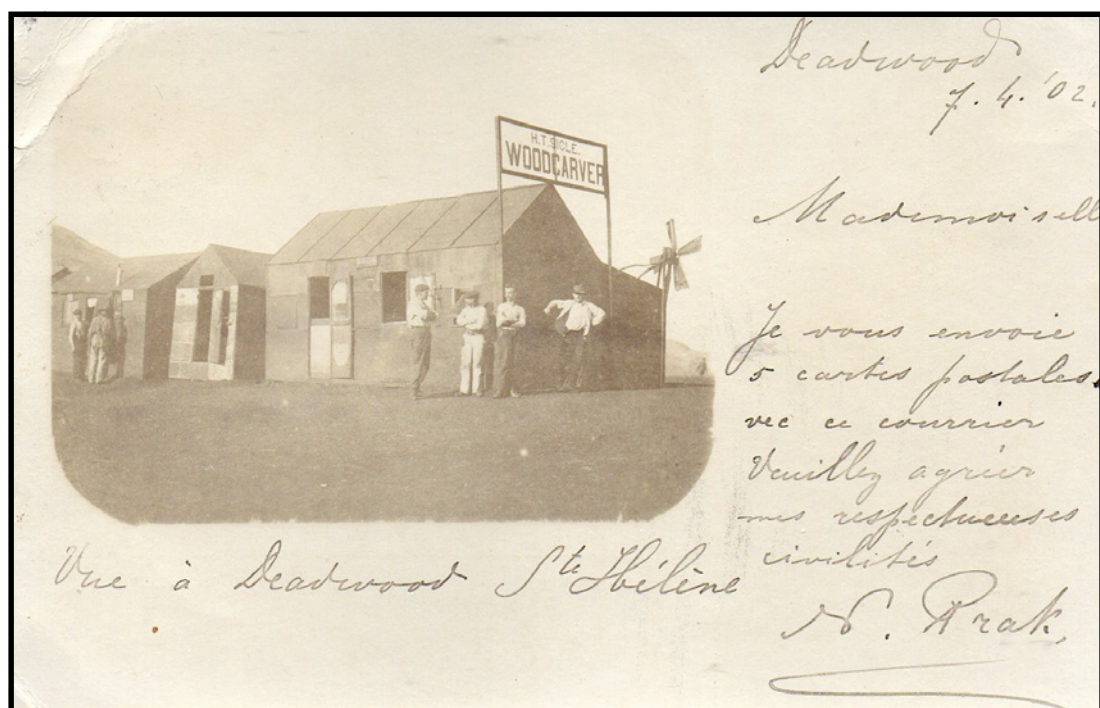 H.T. SICLE.
WOODCARVER
Deadwood
7. 4. '02.
Mademoisell
Je vous envoie
5 cartes postales
vec ce courrier
Veuillez agréer
mes respectueuses
civilités
N. Prak.
Vue à Deadwood Ste Hélène